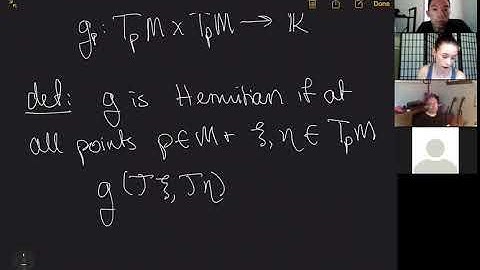 Done
g_p : T_p M × T_p M → K
def: g is Hermitian if at
all points p ∈ M + ξ, η ∈ T_p M
g(Jξ, Jη)